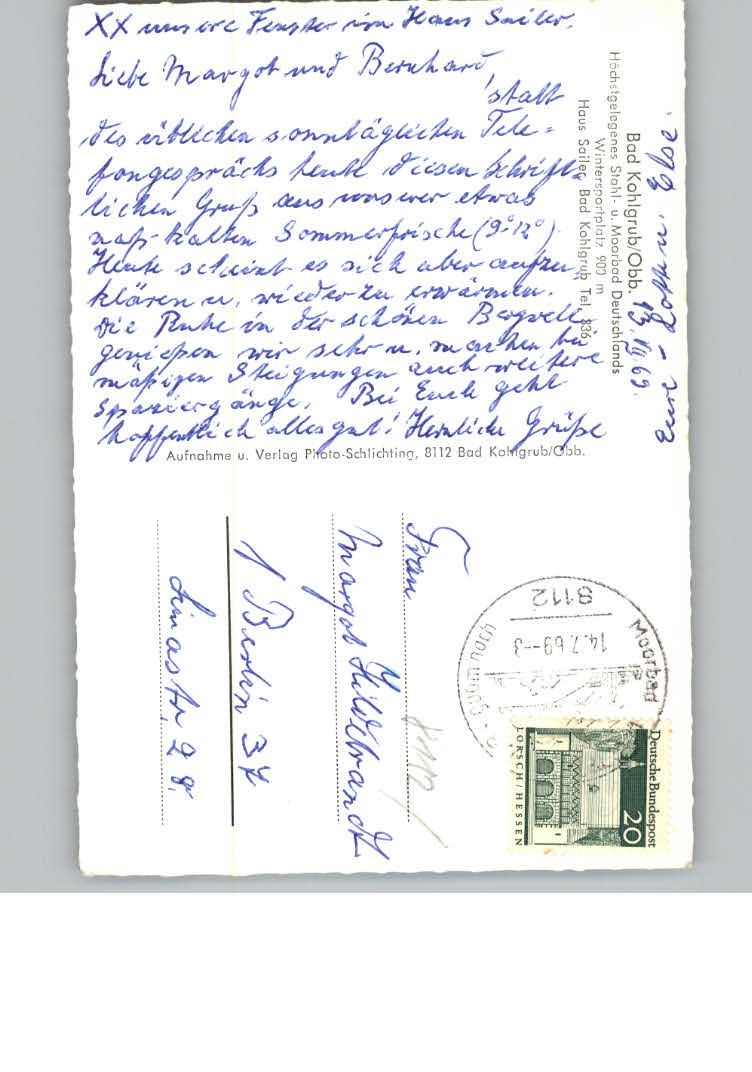 XX unsere Fenster im Haus Sailer.
Liebe Margot und Bernhard,
'statt
des üblichen sonntäglichen Tele-
fongesprächs heute diesen schrift-
lichen Gruß aus unserer etwas
naß-kalten Sommerfrische (9°-12°).
Heute scheint es sich aber aufzu-
klären u. wieder zu erwärmen.
Die Ruhe in der schönen Bergwelt
genießen wir sehr u. machen bei
mäßigen Steigungen auch weitere
Spaziergänge. Bei Euch geht
hoffentlich alles gut! Herzliche Grüße
Eure Lothar u. Else.
13.VII.69.
Bad Kohlgrub/Obb.
Höchstgelegenes Stahl- u. Moorbad Deutschlands
Wintersportplatz 900 m
Haus Sailer, Bad Kohlgrub Tel. 336
Aufnahme u. Verlag Photo-Schlichting, 8112 Bad Kohlgrub/Obb.
Frau
Margot Hildebrandt
1 Berlin 37
8112
14.7.69-3
Moorbad
900m hoch
Deutsche Bundespost
20
LORSCH/HESSEN